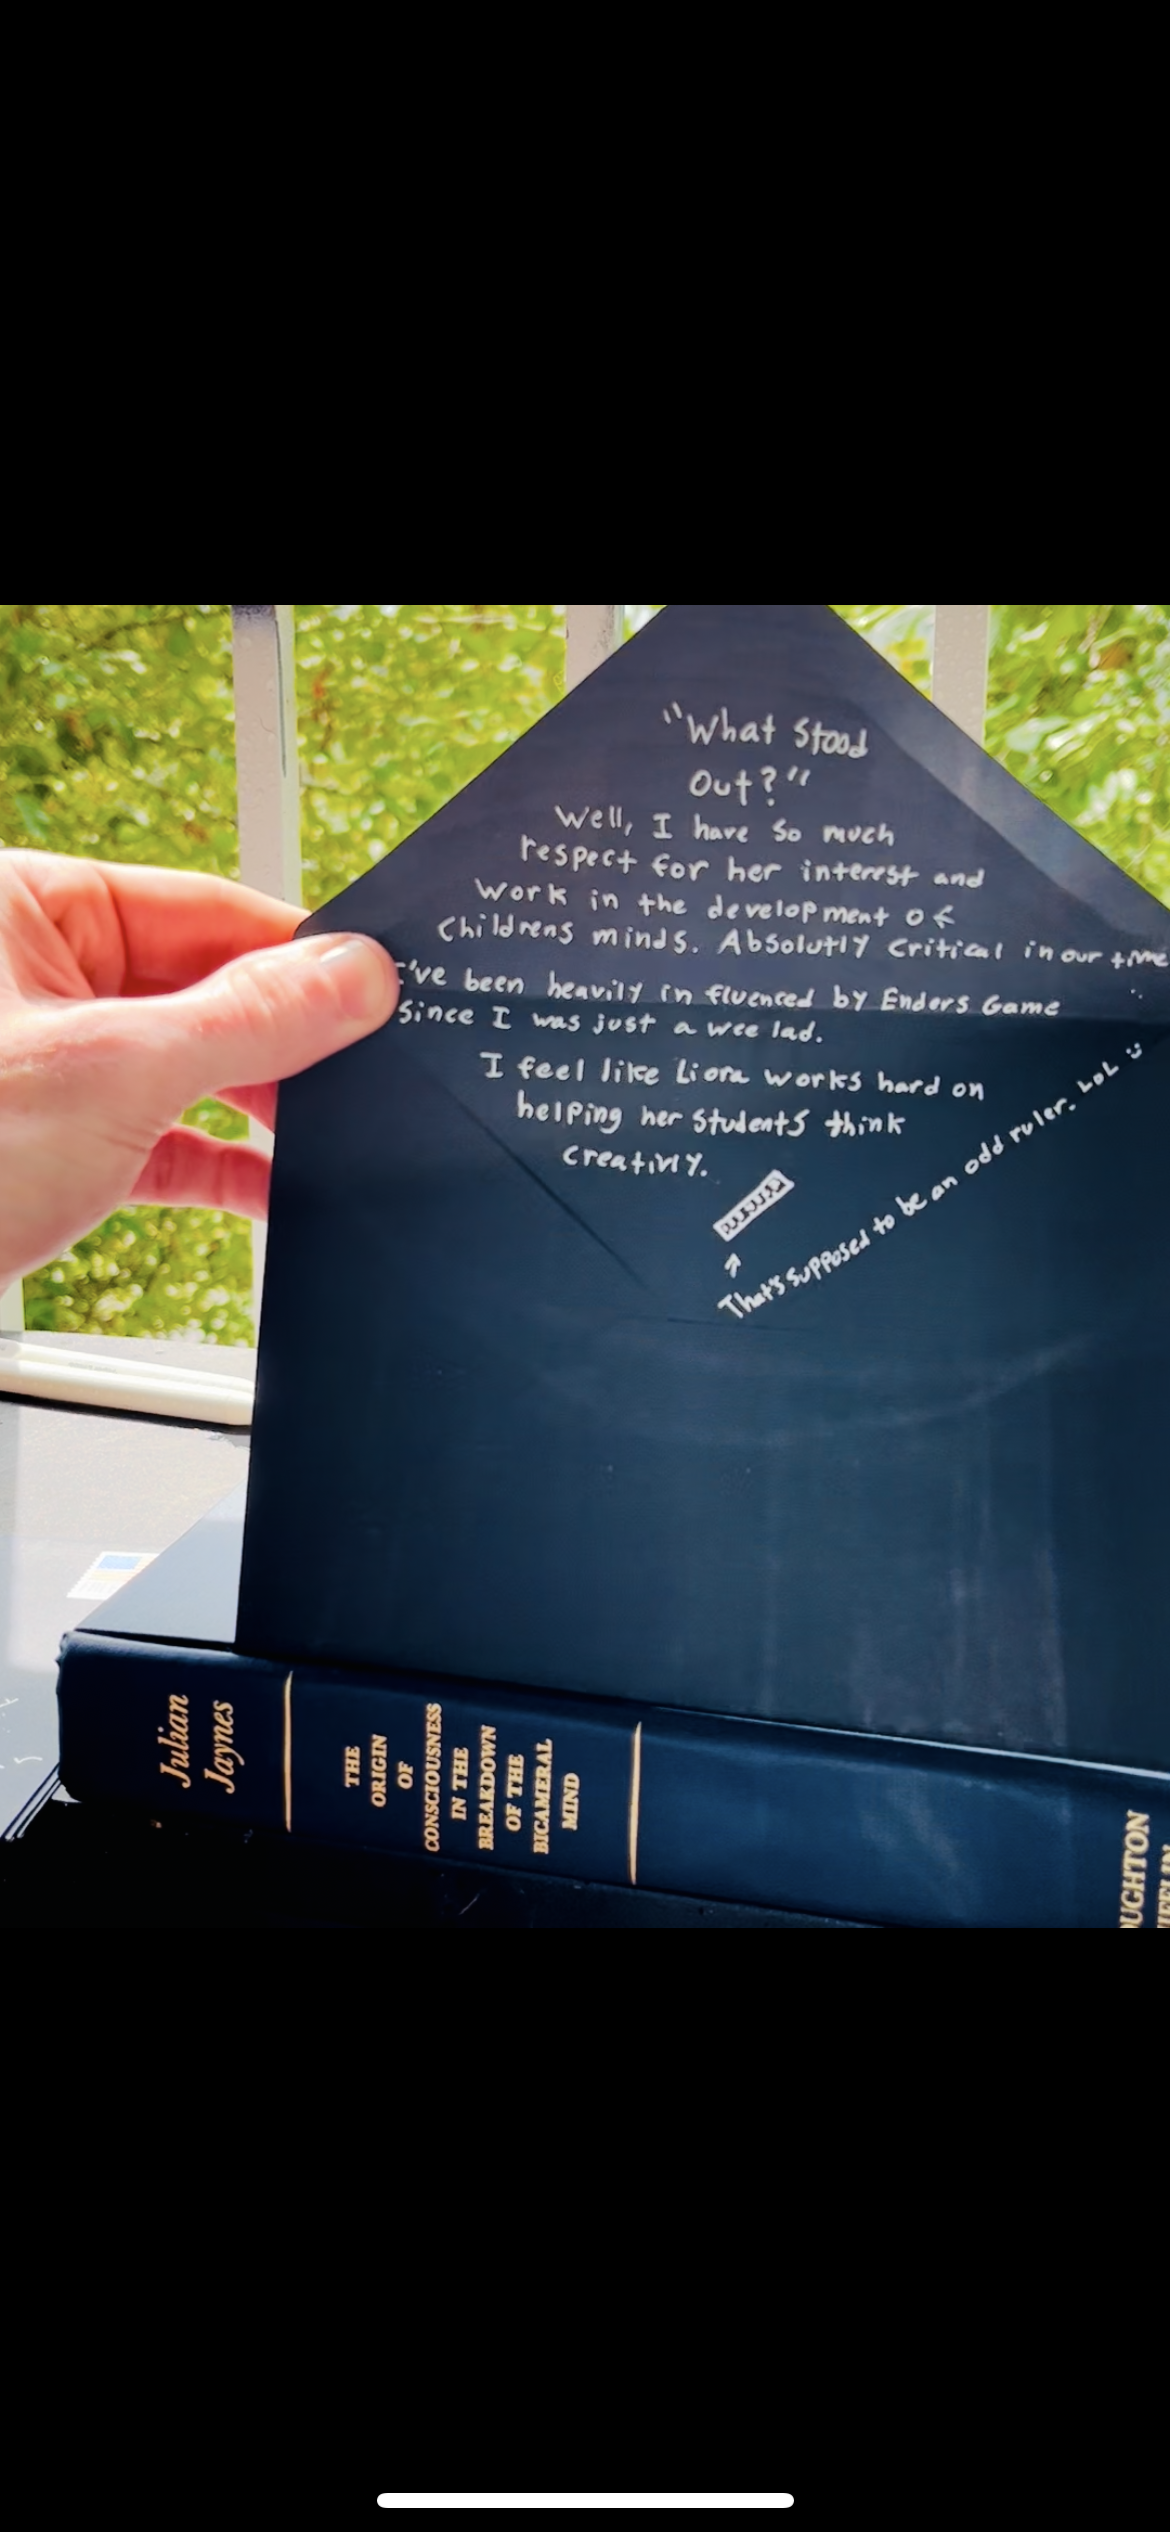 "What Stood
Out?"
Well, I have so much
respect for her interest and
work in the development of
Childrens minds. Absolutly Critical in our time
I've been heavily influenced by Enders Game
Since I was just a wee lad.
I feel like Liora works hard on
helping her Students think
creativly.
That's supposed to be an odd ruler. LoL :)
Julian
Jaynes
THE
ORIGIN
OF
CONSCIOUSNESS
IN THE
BREAKDOWN
OF THE
BICAMERAL
MIND
OUGHTON